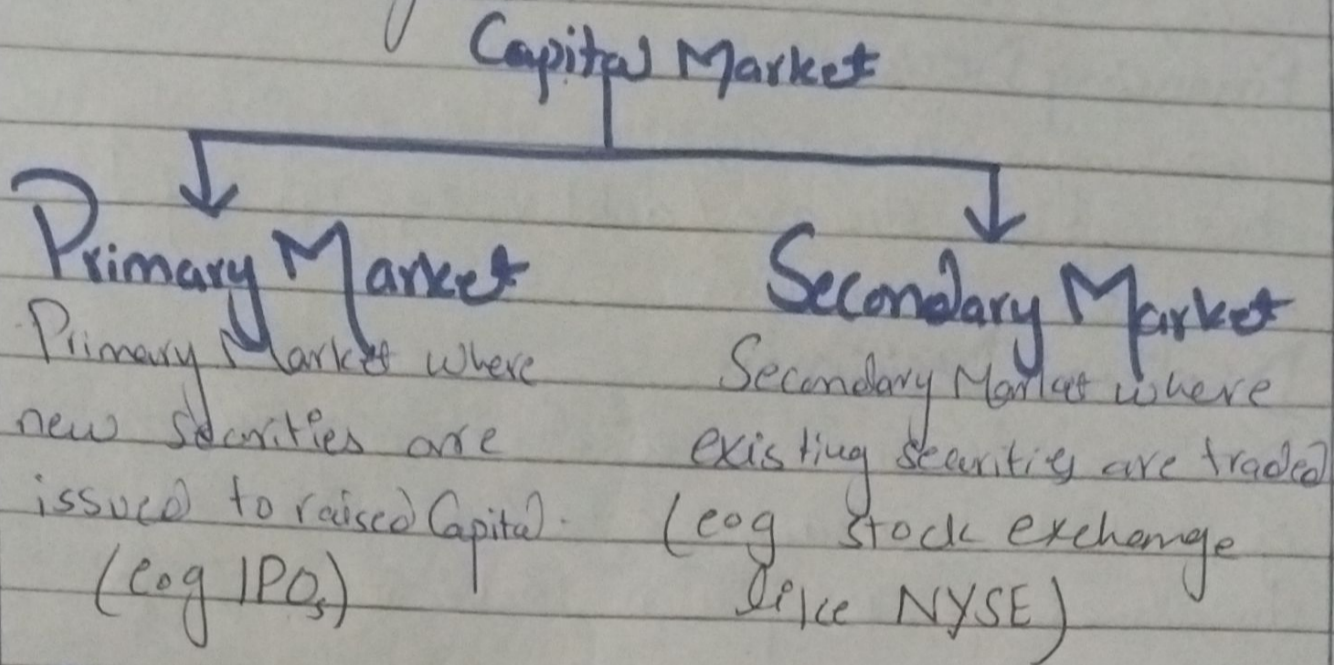 Capital Market
Primary Market
Primary Market where
new securities are
issued to raised Capital.
(eog IPOs)
Secondary Market
Secondary Market where
existing securities are traded
(eog stock exchange
like NYSE)